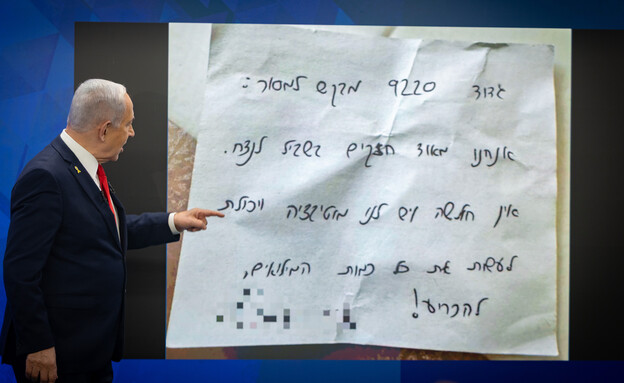 גדוד 9220 מבקש למסור:
אנחנו מאוד חזקים בשביל לנצח.
אין חולשה ויש לנו מוטיבציה ויכולת
לעשות את כל כמות המילואים,
להכריע!